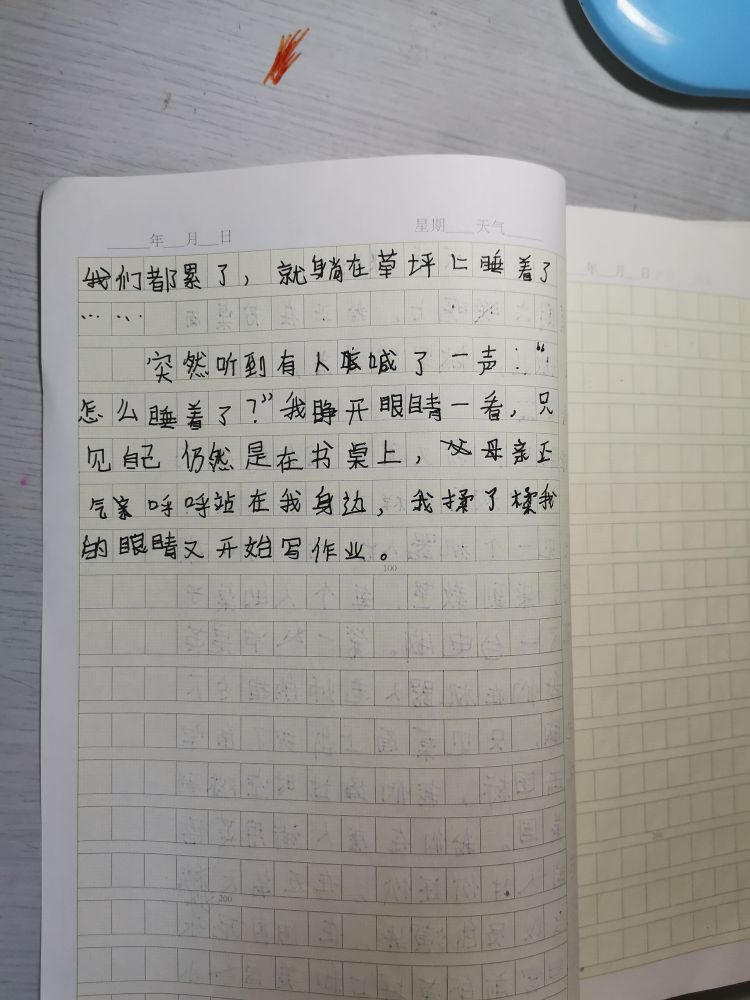 年 月 日 星期 天气
我们都累了，就躺在草坪上睡着了
……
突然听到有人喊了一声："
怎么睡着了？"我睁开眼睛一看，只
见自己仍然是在书桌上，父母亲正
气呼呼站在我身边，我揉了揉我
的眼睛又开始写作业。
100
200
年 月 日